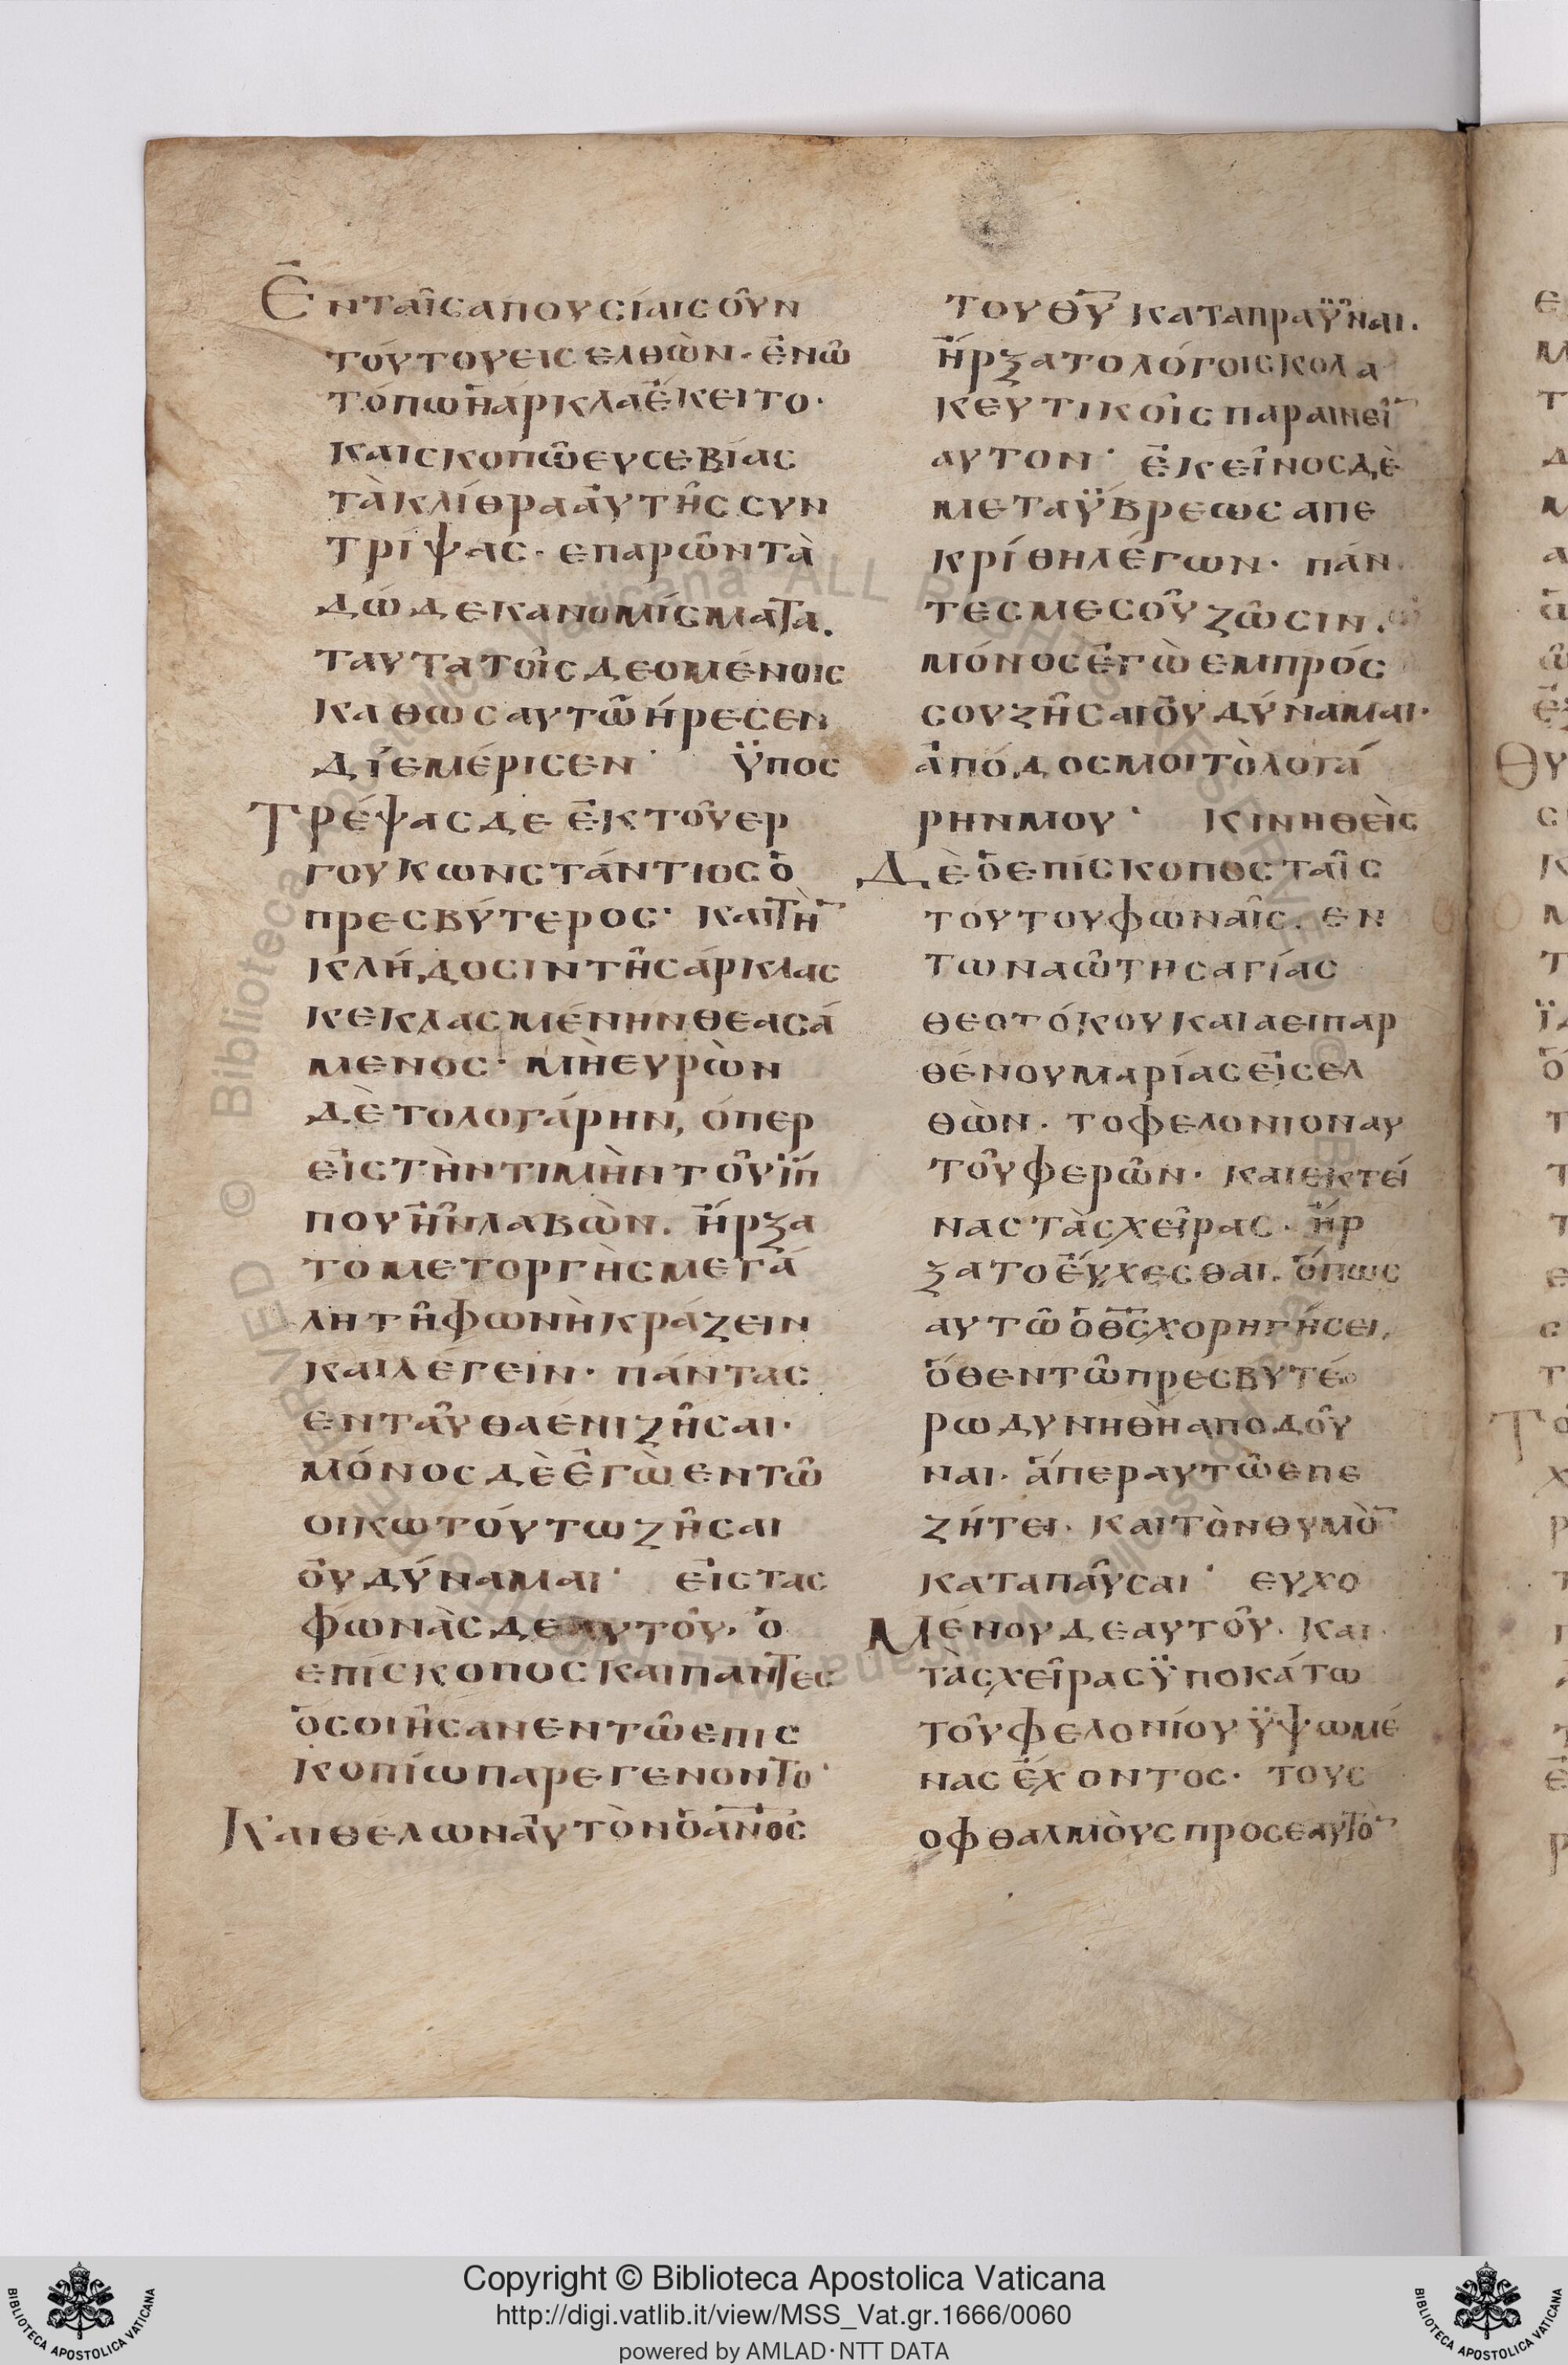 Ἐν ταῖς απουσίαις οὖν
τούτου εισελθὼν· ἐν ὧ
τόπω ἡ ἄρκλα ἔκειτο·
και σκοπῶ ευσεβίας
τὰ κλίθρα αὐτῆς συν
τρίψας· επαρῶν τὰ
δώδεκα νομίσματα.
ταυτα τοῖς δεομένοις
καθως αυτῶ ήρεσεν
διεμέρισεν· ϋποσ
Τρέψας δε ἐκ τοῦ ερ
γου κωνστάντιος ὁ
πρεσβύτερος· και τὴν
κλήδοσιν τῆς άρκλας
κεκλασμένην θεασά
μενος· μὴ ευρὼν
δὲ το λογάρην, όπερ
εἰς τὴν τιμὴν τοῦ ϊπ
που ἦν λαβὼν. ἤρξα
το μετ οργὴς μεγά
λη τῆ φωνὴ κράζειν
και λέγειν· πάντας
ενταῦθα ενι ζῆσαι·
μόνος δὲ ἐγὼ εν τῶ
οικω τούτω ζῆσαι
οὐ δύναμαι· εἰς τας
φωνὰς δε αυτοῦ, ὁ
επίσκοπος και παντες
ὅσοι ἦσαν εν τῶ επισ
κοπίω παρεγενοντο·
Και θέλων αὐτὸν ὁ ανος
του θυ καταπραϋναι.
ἤρξατο λόγοις κολα
κευτικοῖς παραινεῖν
αυτον· ἐκεῖνος δὲ
μετα ϋβρεως απε
κρίθη λέγων· πάν
τες μεσοῦ ζῶσιν.
μόνος ἐγὼ εμπρόσ
σου ζῆσαι οὐ δύναμαι·
ἀπόδος μοι τὸ λογά
ρην μου· κινηθεὶς
Δὲ ὁ επίσκοπος ταῖς
τούτου φώναῖς. εν
τω ναῶ της αγίας
θεοτόκου και αειπαρ
θένου μαρίας εἰσελ
θὼν· το φελονιον αυ
τοῦ φερῶν· και εκτεί
νας τὰς χεῖρας· ἤρ
ξατο εὔχεσθαι. ὅπως
αυτῶ ὁ θς χορηγήσει,
ὅθεν τῶ πρεσβυτέ
ρω δυνηθὴ αποδοῦ
ναι. ἅπερ αυτῶ επε
ζήτει. και τὸν θυμὸν
καταπαῦσαι· ευχο
Μένου δε αυτοῦ. και
τὰς χεῖρας ϋποκάτω
τοῦ φελονίου ϋψωμέ
νας ἔχοντος· τους
οφθαλμὸυς προς εαυτὸν
Copyright © Biblioteca Apostolica Vaticana
http://digi.vatlib.it/view/MSS_Vat.gr.1666/0060
powered by AMLAD·NTT DATA